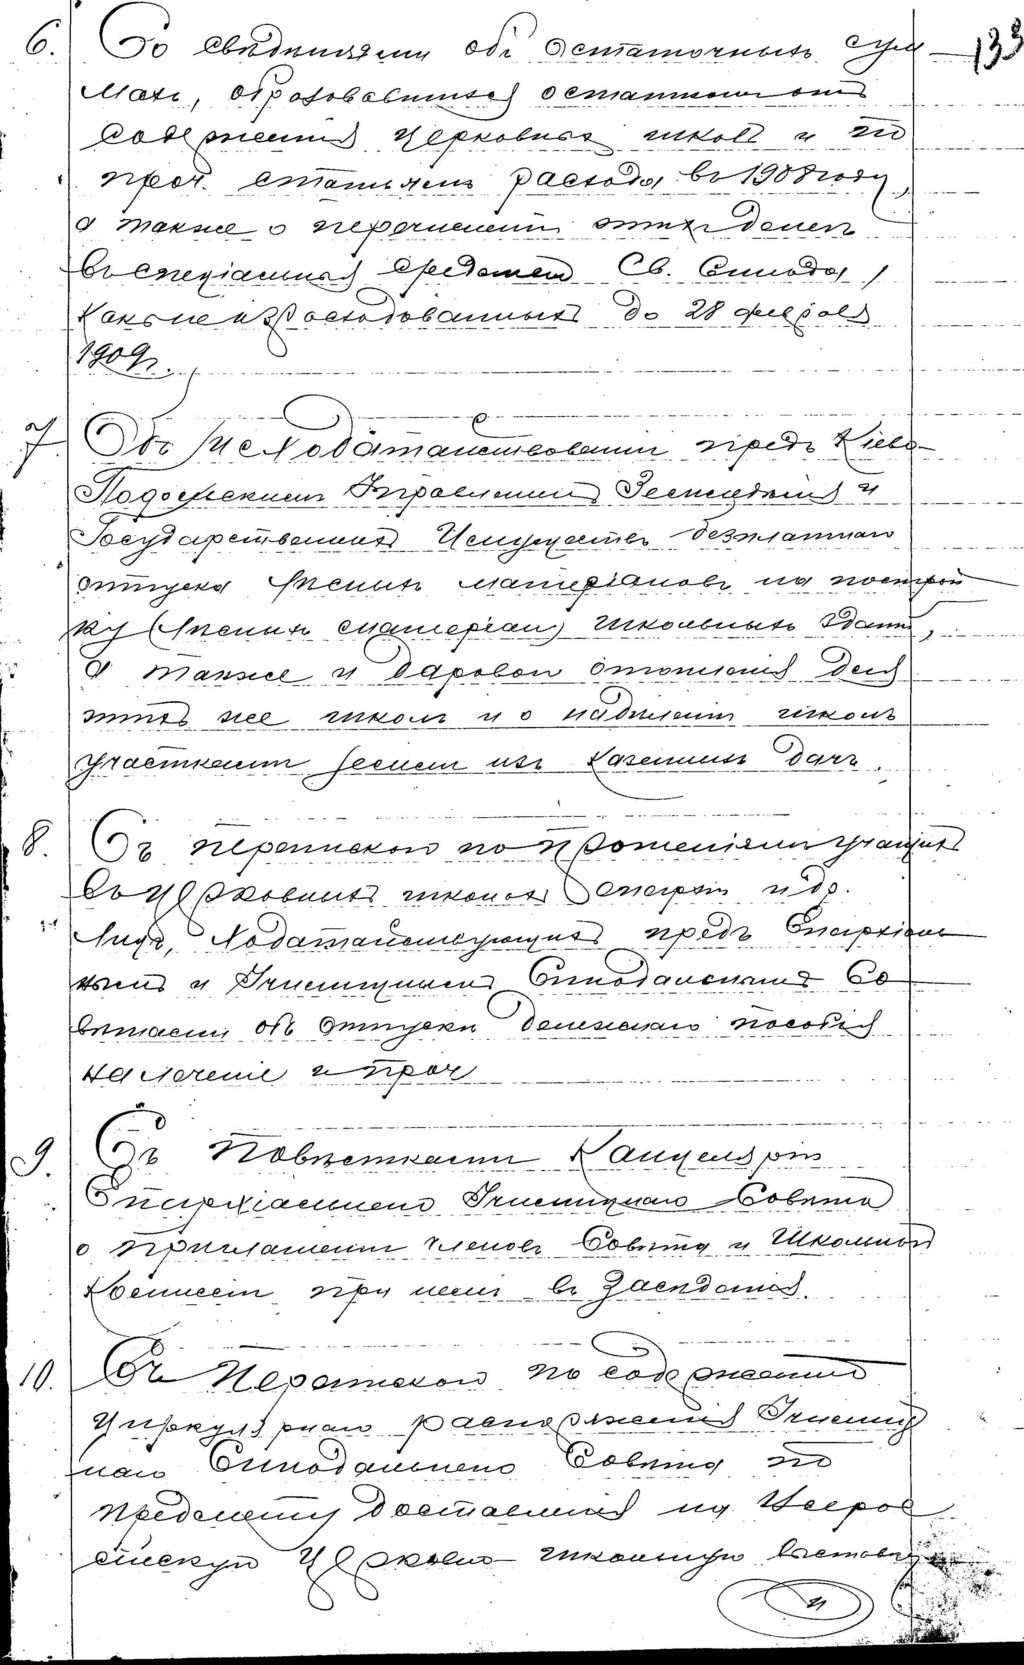 133
6. Со свѣдѣніями объ остаточныхъ сум
махъ, образовавшихся остатками отъ
содержанія церковныхъ школъ и по
проч. статьямъ расхода въ 1908 году,
а также о перечисленіи этихъ денегъ
въ спеціальныя средства Св. Синода,
какъ не израсходованныхъ до 28 февраля
1909 г.
7. Объ исходатайствованіи предъ Кіево-
Подольскимъ Управленіемъ Земледѣлія и
Государственныхъ Имуществъ безплатнаго
отпуска лѣсныхъ матеріаловъ на построй
ку (лѣсныхъ матеріал) школьныхъ зданій,
а также и даровой отопленія для
этихъ же школъ и о надѣленіи школъ
участками земли изъ казенныхъ дачъ.
8. Съ перепиской по прошеніямъ учащихъ
въ церковныхъ школахъ епархіи и др.
лицъ, ходатайствующихъ предъ Епархіаль
нымъ и Училищнымъ Синодальнымъ Со
вѣтами объ отпускѣ денежнаго пособія
на леченіе и проч
9. Съ Повѣстками Канцеляріи
Епархіальнаго Училищнаго Совѣта
о приглашеніи членовъ Совѣта и Школьной
Комиссіи при немъ въ Засѣданія.
10. Съ Перепиской по содержанію
циркулярнаго распоряженія Училищ
наго Синодальнаго Совѣта по
предмету доставленія на Всерос
сійскую Церковно-школьную выставку